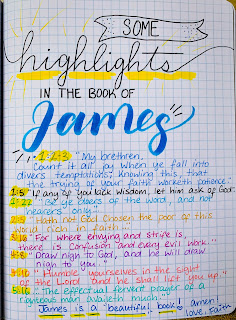 SOME
highlights
IN THE BOOK OF
James
1:2-3 "My brethren,
Count it all joy when ye fall into
divers temptations; knowing this, that
the trying of your faith worketh patience."
1:5 "If any of you lack wisdom, let him ask of God."
1:22 "Be ye doers of the word, and not
hearers only..."
2:5 "Hath not God chosen the poor of this
world rich in faith...
3:16 "For where envying and strife is,
there is confusion and every evil work."
4:8 "Draw nigh to God, and he will draw
nigh to you."
4:10 "Humble yourselves in the sight
of the Lord, and he shall lift you up."
5:16 "...The effectual fervent prayer of a
righteous man availeth much."
James is a beautiful book, amen.
love, Faith